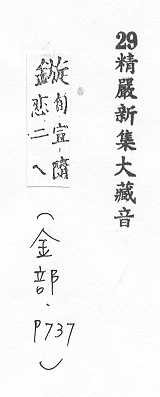 29精嚴新集大藏音
旋旬宣隨
鏇恋二へ
(金部.P737)